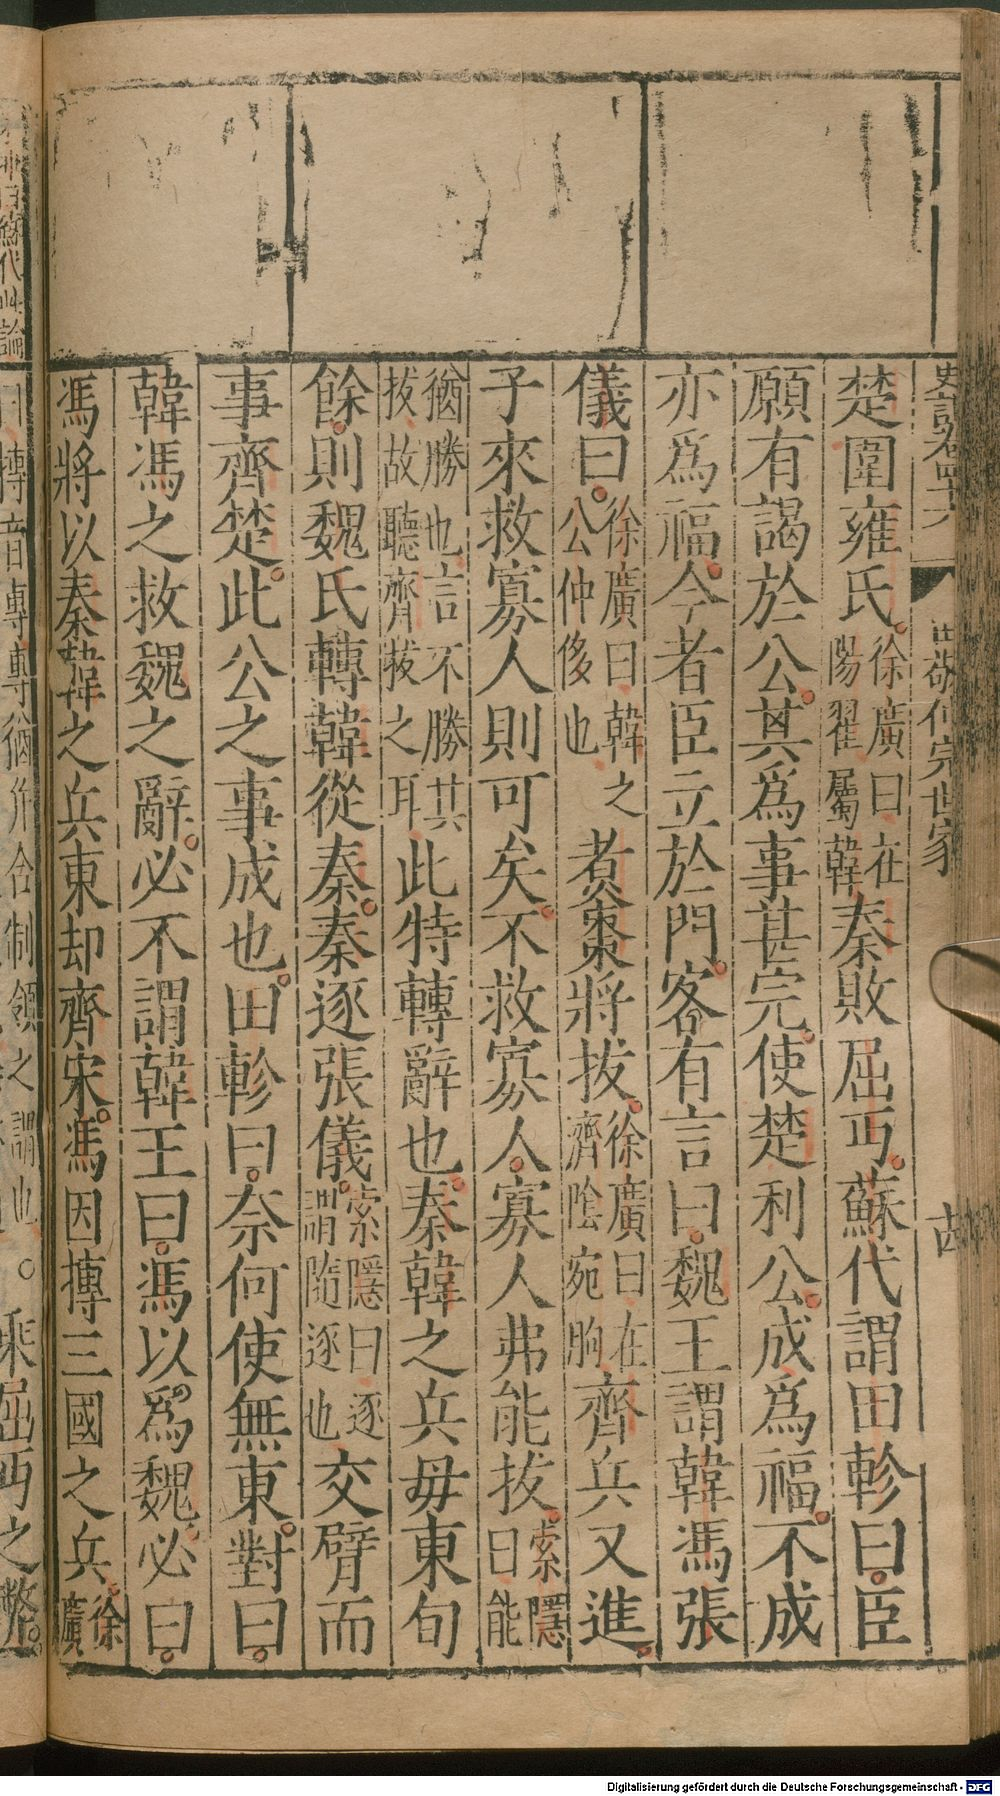 史記卷四十六 田敬仲完世家 十四
楚圍雍氏徐廣曰在陽翟屬韓秦敗屈丐蘇代謂田軫曰臣
願有謁於公其爲事甚完使楚利公成爲福不成
亦爲福今者臣立於門客有言曰魏王謂韓馮張
儀曰徐廣曰韓之公仲侈也煑棗將拔徐廣曰在濟陰宛朐齊兵又進
子來救寡人則可矣不救寡人寡人弗能拔索隱曰能
猶勝也言不勝其拔故聽齊拔之耳此特轉辭也秦韓之兵毋東旬
餘則魏氏轉韓從秦秦逐張儀索隱曰逐謂隨逐也交臂而
事齊楚此公之事成也田軫曰奈何使無東對曰
韓馮之救魏之辭必不謂韓王曰馮以爲魏必曰
馮將以秦韓之兵東却齊宋馮因摶三國之兵徐廣
曰摶音專專猶并合制領之謂也。乘屈丐之弊
Digitalisierung gefördert durch die Deutsche Forschungsgemeinschaft - DFG